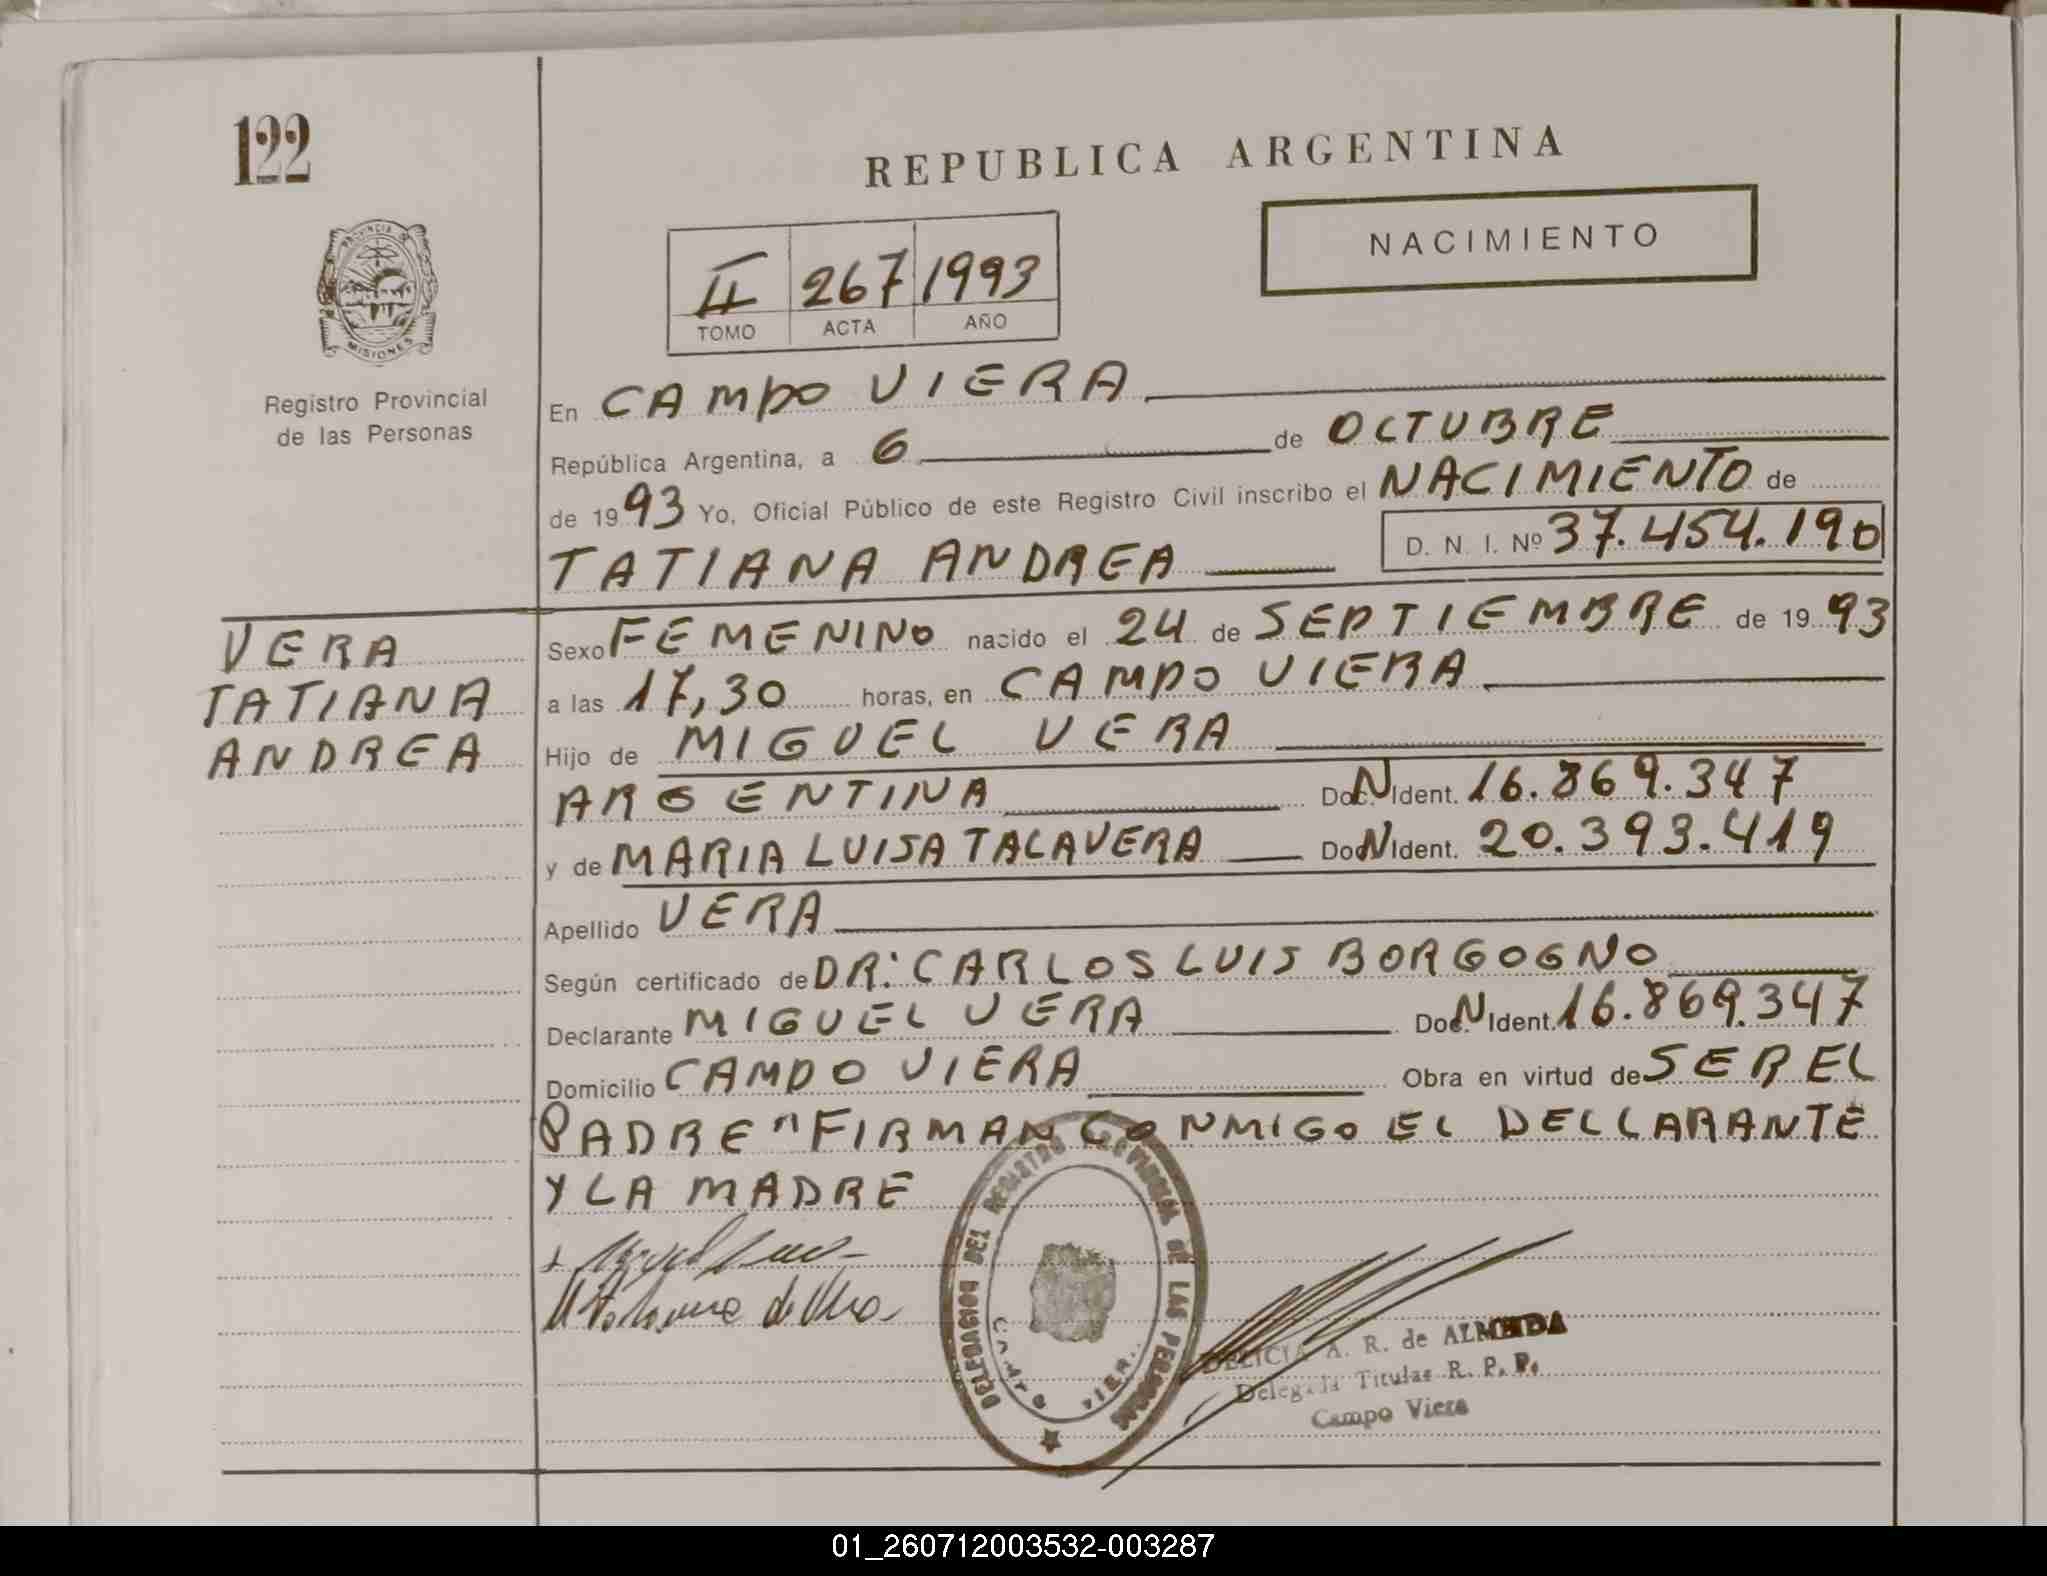 122
REPUBLICA ARGENTINA
NACIMIENTO
II 267 1993
TOMO ACTA AÑO
PROVINCIA DE
MISIONES
Registro Provincial
de las Personas
En CAMPO VIERA
República Argentina, a 6 de OCTUBRE
de 1993 Yo, Oficial Público de este Registro Civil inscribo el NACIMIENTO de
TATIANA ANDREA D. N. I. Nº 37.454.190
VERA
TATIANA
ANDREA
Sexo FEMENINO nacido el 24 de SEPTIEMBRE de 1993
a las 17,30 horas, en CAMPO VIERA
Hijo de MIGUEL VERA
ARGENTINA Doc. N Ident. 16.869.347
y de MARIA LUISA TALAVERA Doc. N Ident. 20.393.419
Apellido VERA
Según certificado de DR: CARLOS LUIS BORGOGNO
Declarante MIGUEL VERA Doc. N Ident. 16.869.347
Domicilio CAMPO VIERA Obra en virtud de SER EL
PADRE " FIRMAN CONMIGO EL DECLARANTE
Y LA MADRE
DELEGACION DEL REGISTRO PROVINCIAL DE LAS PERSONAS
CAMPO VIERA
DELICIA A. R. de ALMEIDA
Delegada Titular R. P. P.
Campo Viera
01_260712003532-003287